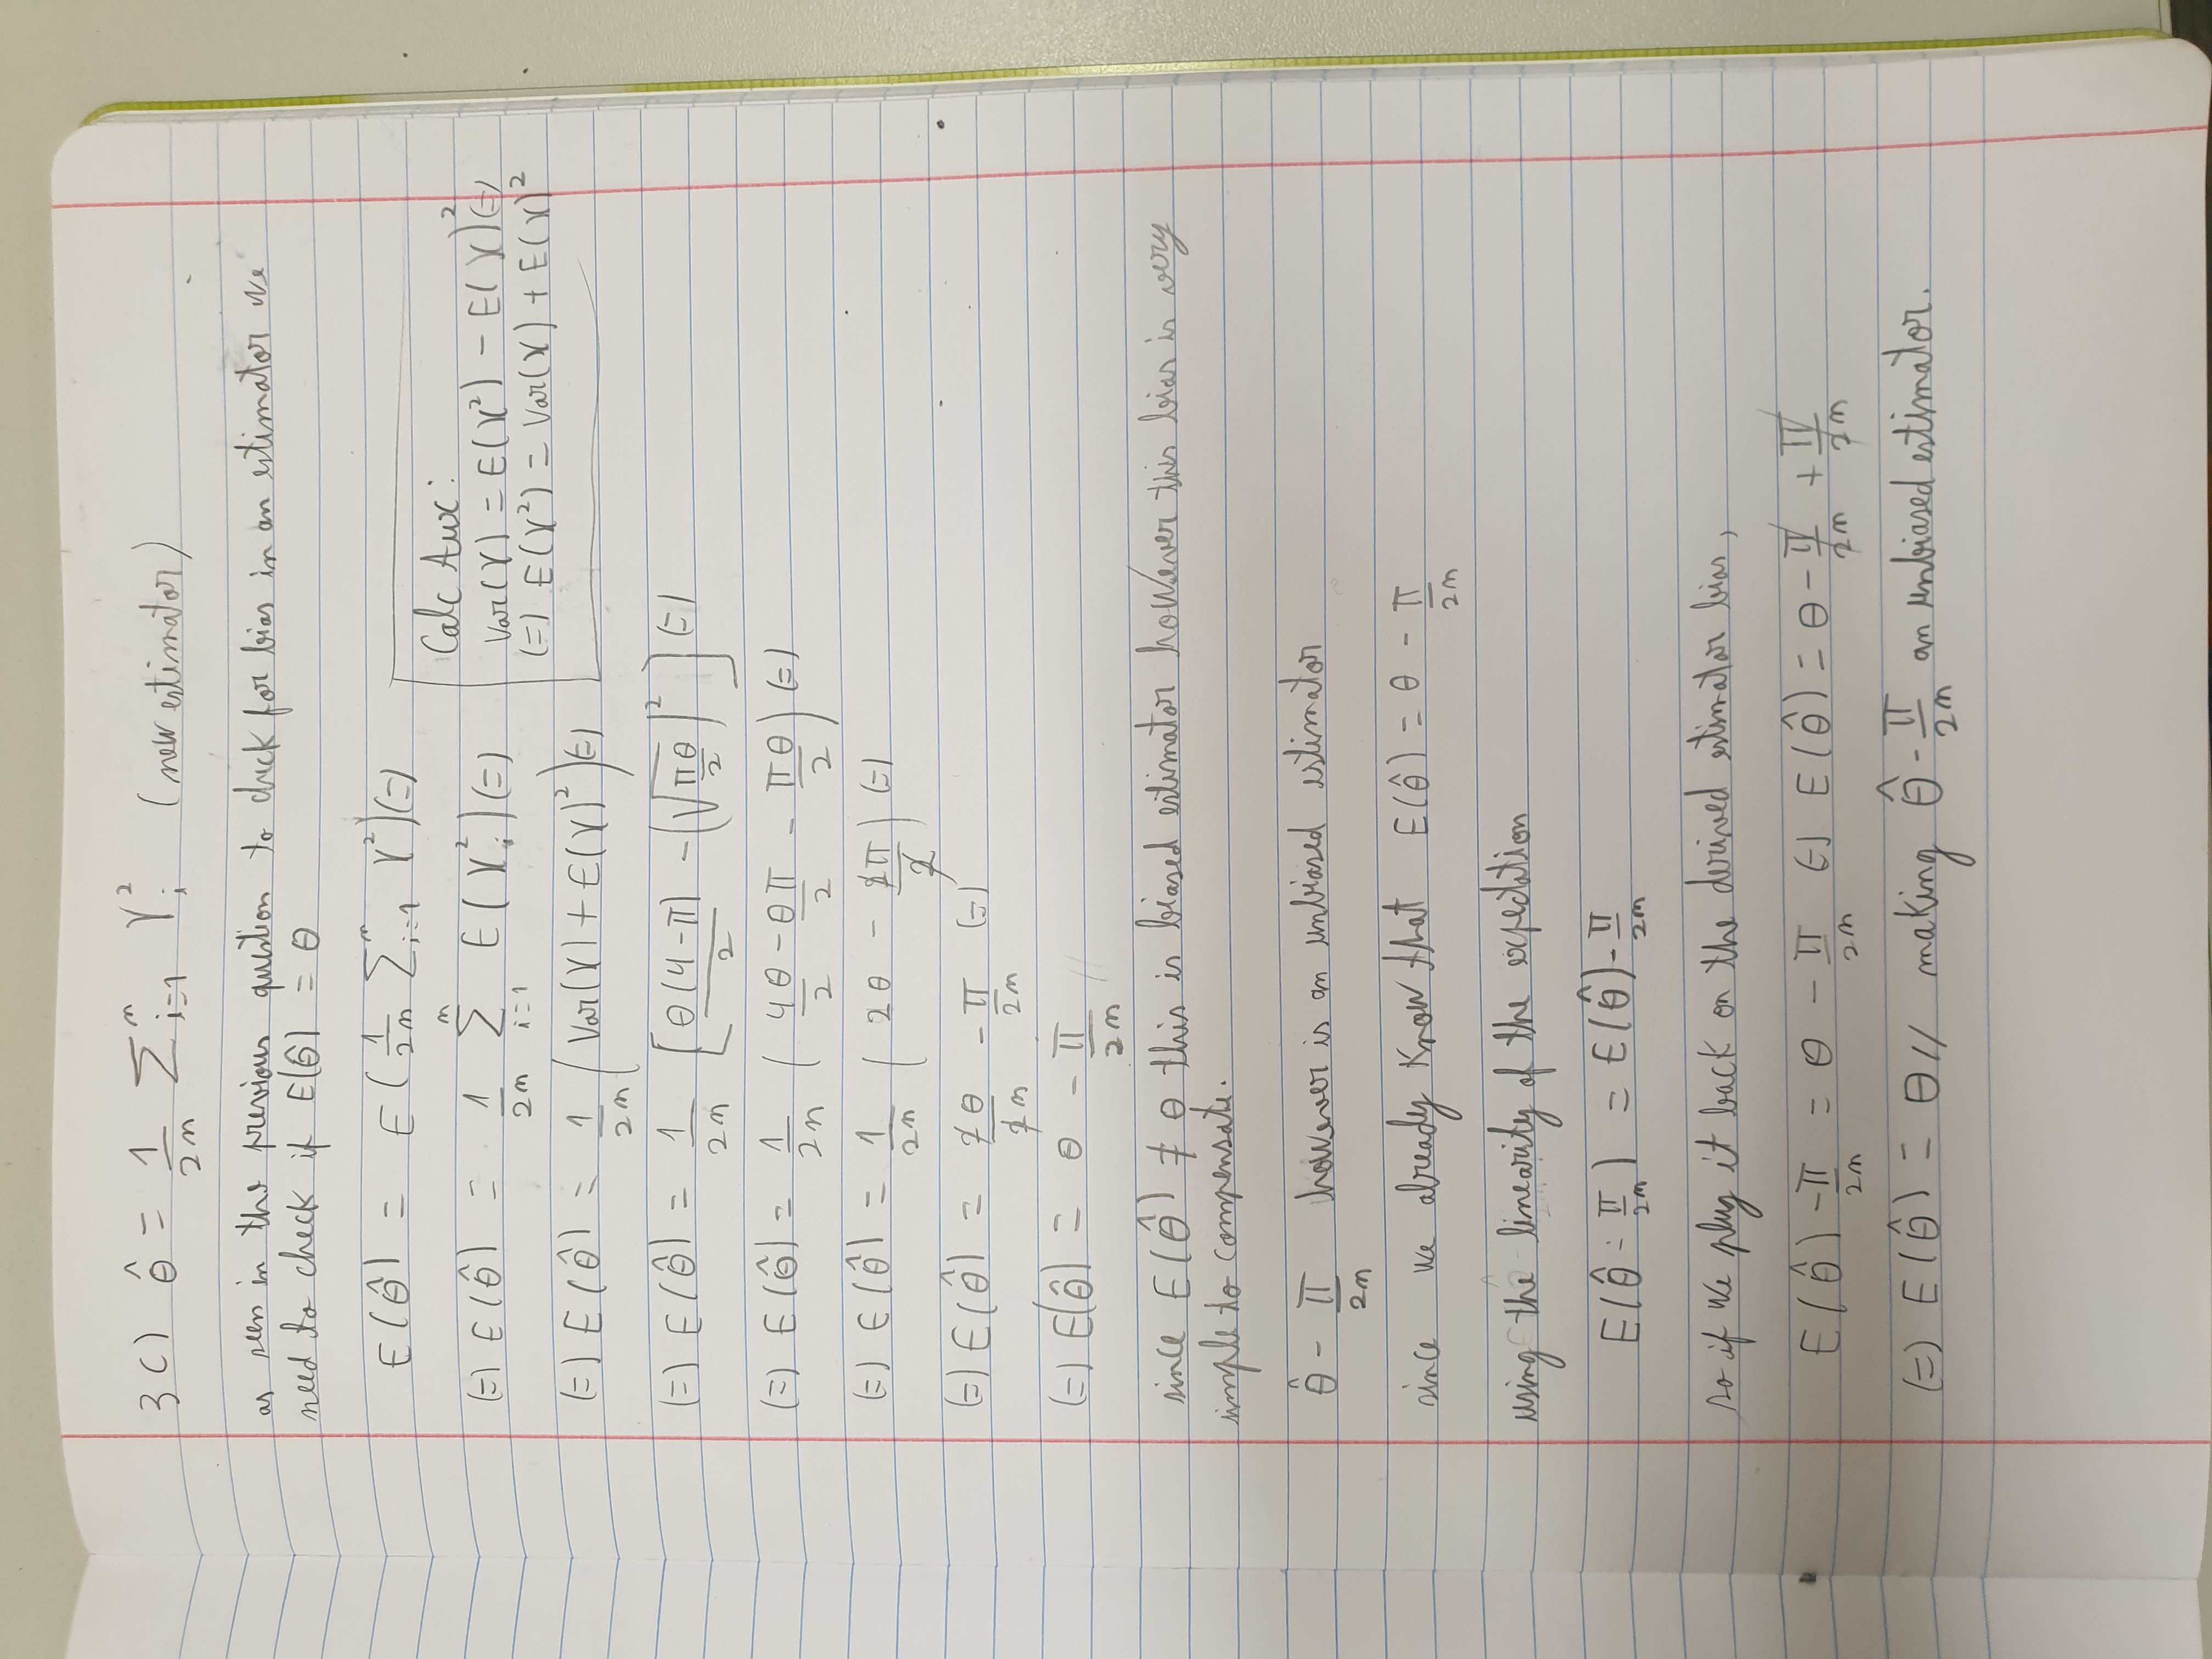 3 c) θ̂ = 1/2n Σⁿᵢ₌₁ Yᵢ² (new estimator)
as seen in the previous question to check for bias in an estimator we
need to check if E(θ̂) = θ
E(θ̂) = E(1/2n Σⁿᵢ₌₁ Y²) (=)
(=) E(θ̂) = 1/2n Σⁿᵢ₌₁ E(Yᵢ²) (=)
(=) E(θ̂) = 1/2n (Var(Y) + E(Y)²) (=)
Calc Aux:
Var(Y) = E(Y²) - E(Y)² (=)
(=) E(Y²) = Var(Y) + E(Y)²
(=) E(θ̂) = 1/2n [θ(4-π)/2 - (√πθ/2)²] (=)
(=) E(θ̂) = 1/2n (4θ/2 - θπ/2 - πθ/2) (=)
(=) E(θ̂) = 1/2n (2θ - 2π/2) (=)
(=) E(θ̂) = 2θ/2n - π/2n (=)
(=) E(θ̂) = θ - π/2n //
since E(θ̂) ≠ θ this is biased estimator however this bias is very
simple to compensate.
θ̂ - π/2n however is an unbiased estimator
since we already know that E(θ̂) = θ - π/2n
using the linearity of the expectation
E(θ̂ - π/2n) = E(θ̂) - π/2n
so if we plug it back on the derived estimator bias,
E(θ̂) - π/2n = θ - π/2n (=) E(θ̂) = θ - π/2n + π/2n
(=) E(θ̂) = θ // making θ̂ - π/2n an unbiased estimator.